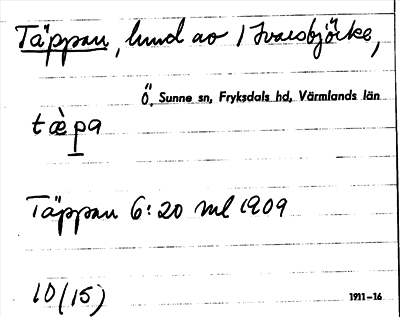 Täppan, lund av 1 Ivarsbjörke,
Ö. Sunne sn, Fryksdals hd, Värmlands län
tæ̀pa
Täppan 6:20 ml 1909
10(15)
1911-16